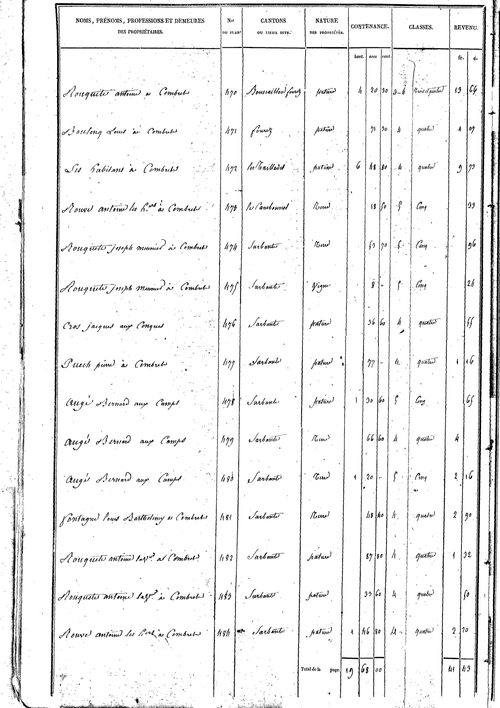 NOMS, PRÉNOMS, PROFESSIONS ET DEMEURES DES PROPRIÉTAIRES. Nos DU PLAN CANTONS OU LIEUX DITS. NATURE DES PROPRIÉTÉS. CONTENANCE. CLASSES. REVENU.
hect. ares cent. fr. c.
Rouquette antoine à Combret 470 pature 4 20 30 3-4 13 64
Louis à Combret 471 pature 71 30 4 quatre 1 07
Les habitans à Combret 472 pature 6 48 80 4 quatre 9 73
Rouve antoine les h.ers à Combret 473 Terre 18 50 5 Cinq 33
Rouquette joseph meunier à Combret 474 Sarbaute Terre 53 70 5 Cinq 96
Rouquette joseph meunier à Combret 475 Sarbaute Vigne 8 - 5 Cinq 24
Cros jacques aux Conques 476 Sarbaute pature 36 60 4 quatre 55
Puech pierre à Combret 477 Sarbaute pature 77 - 4 quatre 1 16
augé Bernard aux Camps 478 Sarbaute pature 1 30 60 5 Cinq 65
augé Bernard aux Camps 479 Sarbaute Terre 66 60 4 quatre 4
augé Bernard aux Camps 480 Sarbaute Terre 1 20 - 5 Cinq 2 16
fontagne louis Barthélemy à Combret 481 Sarbaute Terre 48 40 4 quatre 2 90
Rouquette antoine à Combret 482 Sarbaute pature 87 80 4 quatre 1 32
Rouquette antoine à Combret 483 Sarbaute pature 33 60 4 quatre 50
Rouve antoine les h.ers à Combret 484 Sarbaute pature 1 46 80 4 quatre 2 20
Total de la page. 19 68 00 41 43